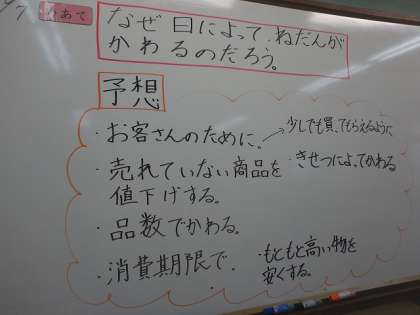 めあて
なぜ日によって、ねだんが
かわるのだろう。
予想
・お客さんのために、→少しでも買ってもらえるように
・売れていない商品を
値下げする。
・きせつによってかわる
・品数でかわる。
・消費期限で、
・もともと高い物を
安くする。